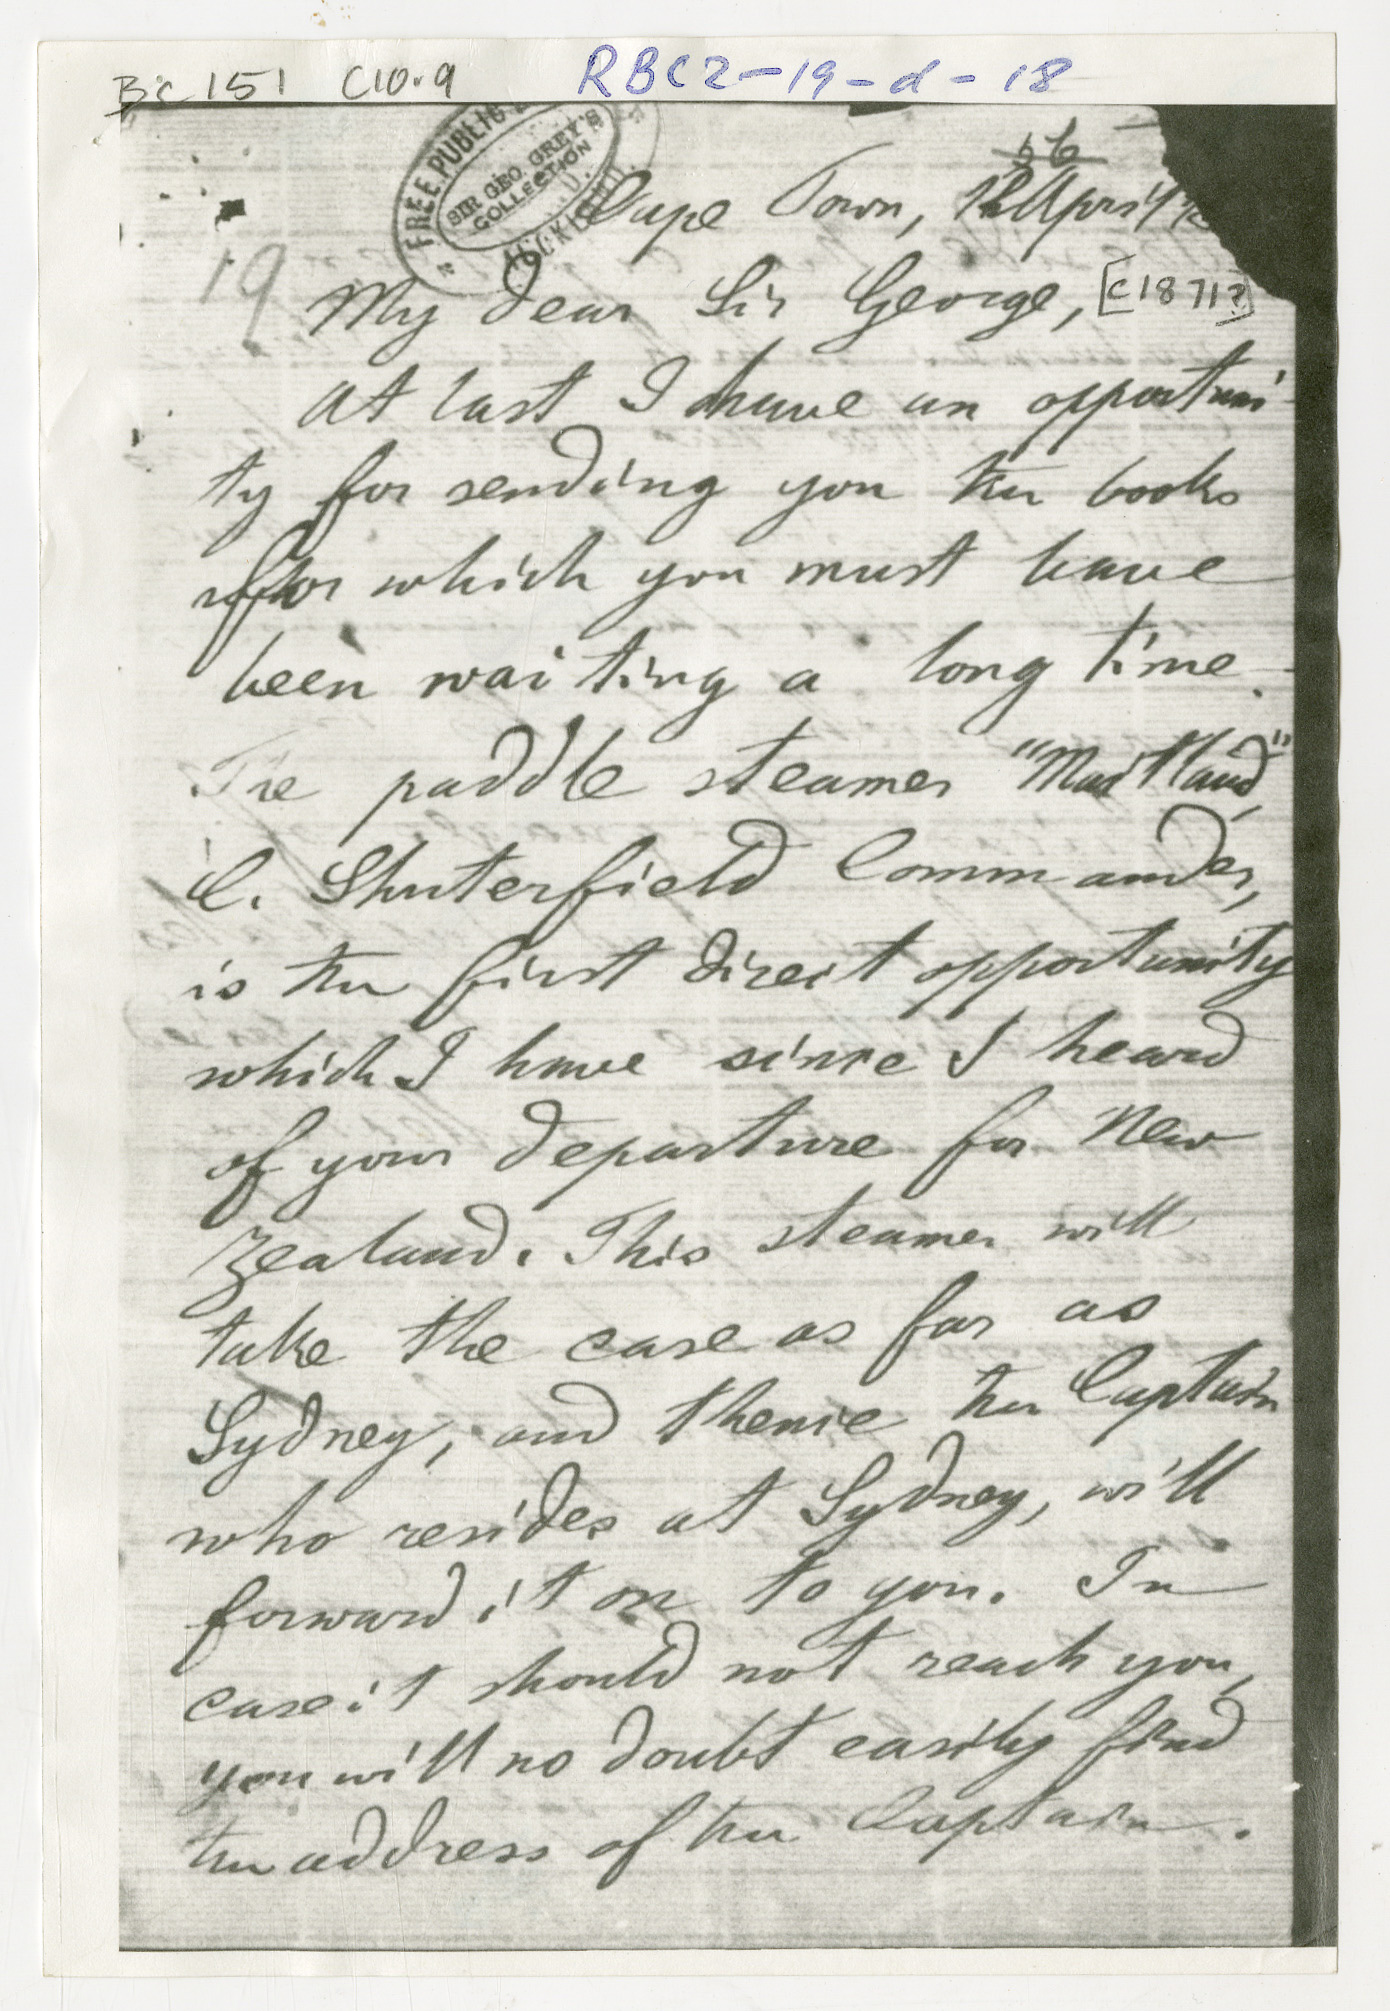 BC 151 C10.9 RBC2-19-d-18
FREE PUBLIC
SIR GEO. GREY'S
COLLECTION
AUCKLAND.
56
Cape Town, 12 April
19
My dear Sir George, [c1871?]
At last I have an opportuni
ty for sending you the books
for which you must have
been waiting a long time.
The paddle steamer "Maitland",
C. Shuterfield Commander,
is the first direct opportunity
which I have since I heard
of your departure for New
Zealand. This steamer will
take the case as far as
Sydney, and thence the Captain
who resides at Sydney, will
forward it on to you. In
case it should not reach you,
you will no doubt easily find
the address of the Captain.